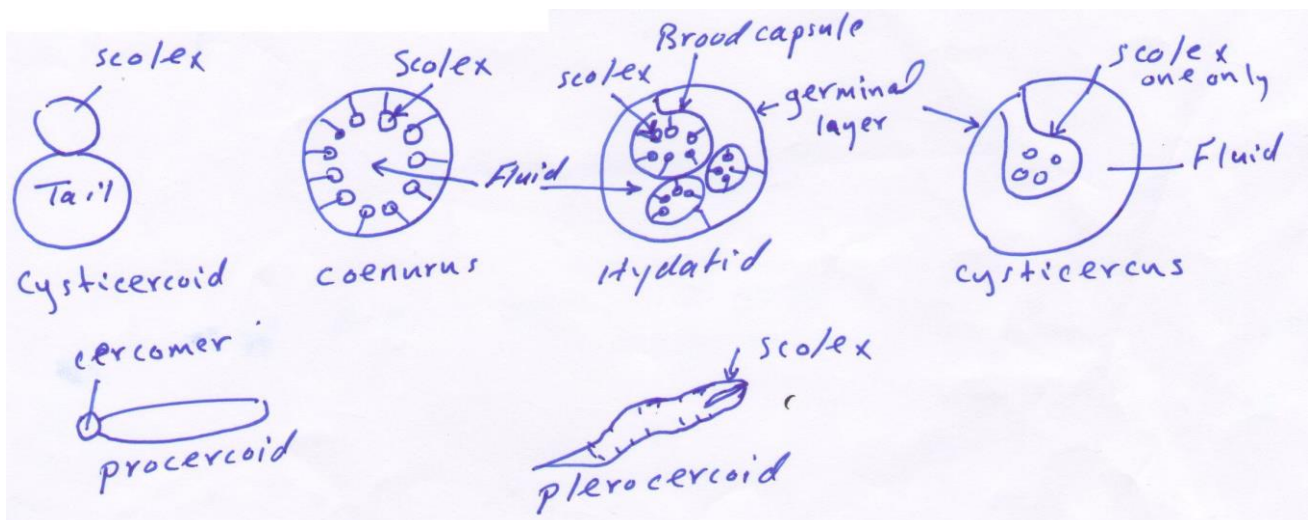 scolex
Tail
Cysticercoid
Scolex
Fluid
coenurus
Brood capsule
scolex
germinal
layer
Hydatid
scolex
one only
Fluid
cysticercus
cercomer
procercoid
scolex
plerocercoid